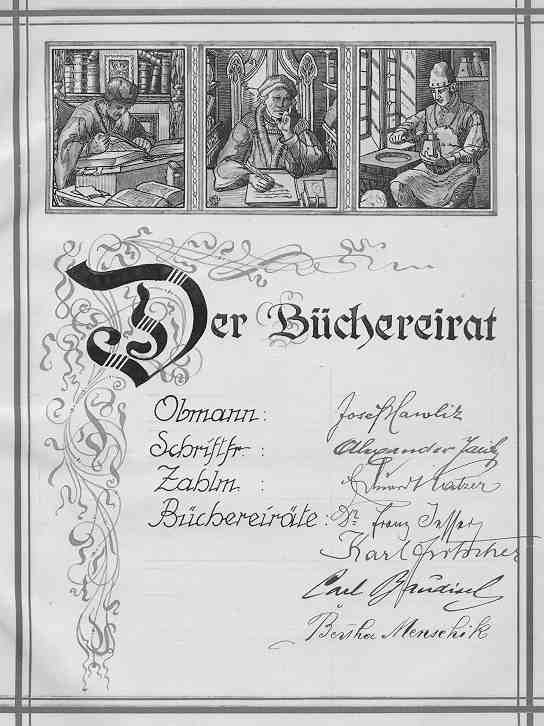 Der Büchereirat
Obmann: Josef Hawlik
Schriftfr.: Alexander
Zahlm. : Eduard Katzer
Büchereiräte: Dr. Franz Jesser
Karl
Carl Baudisch
Bertha Menschik